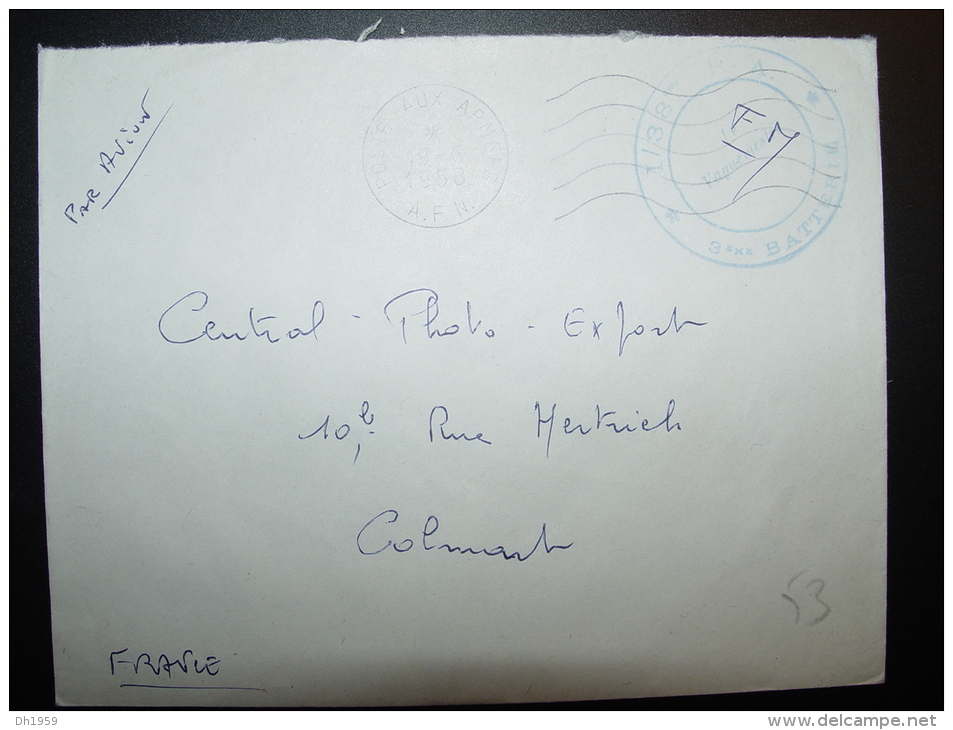 PAR AVION
POSTE AUX ARMÉES
*
19-6
1958
A.F.N.
1/38 R. A.
* 3ème BATTERIE *
Le
Vaguemestre
Central - Photo - Export
10,b. Rue Hertrich
Colmar
53
FRANCE
Dh1959
delcampe.net